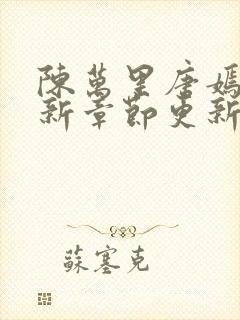 陳萬里唐嫣
新章節更新
蘇塞克